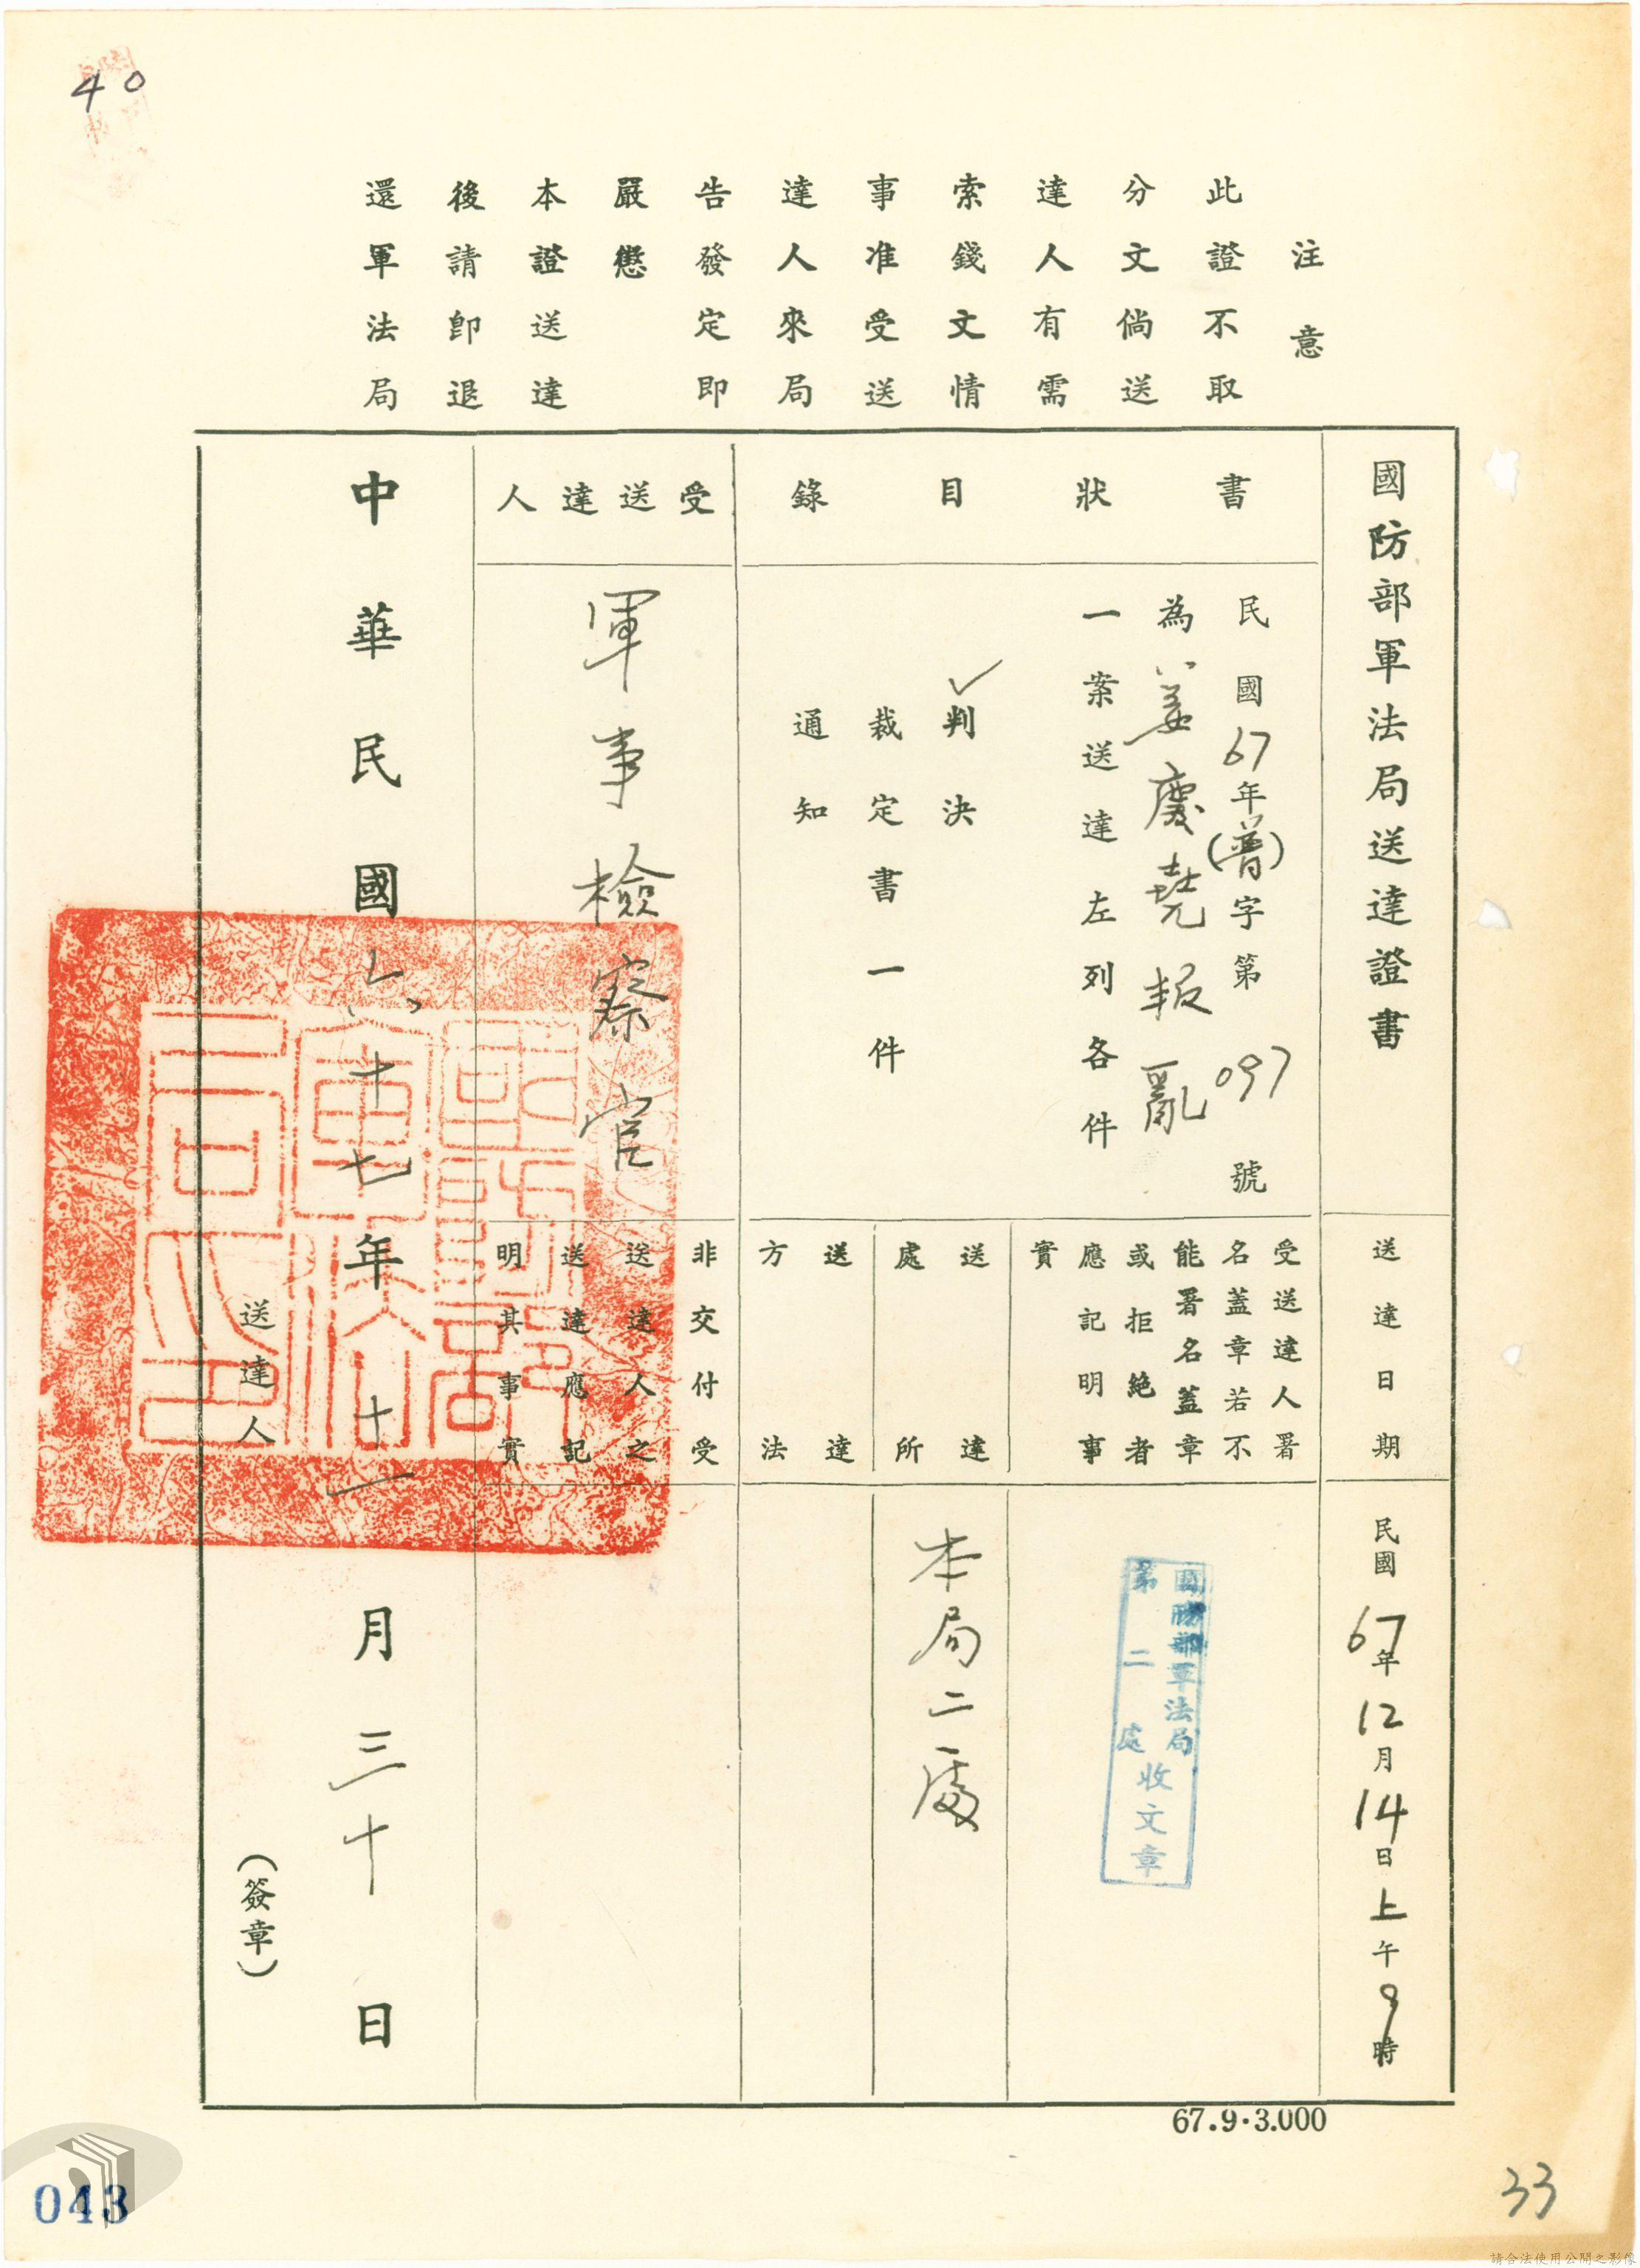 40
注意
此證不取
分文倘送
達人有需
索錢文情
事准受送
達人來局
告發定即
嚴懲
本證送達
後請卽退
還軍法局
國防部軍法局送達證書
送達日期
民國67年12月14日上午9時
書狀目錄
民國67年(普)字第097號
為姜慶堯叛亂
一案送達左列各件
✓判決
裁定書一件
通知
受送達人署
名蓋章若不
能署名蓋章
或拒絶者
應記明事
實
國防部軍法局
第二處
收文章
送達
處所
本局二處
送達
方法
受送達人
軍事檢察官
非交付受
送達人之
送達應記
明其事實
中華民國六十七年十一月三十日
國防部軍法局之印
送達人
(簽章)
67.9·3.000
33
043
請合法使用公開之影像